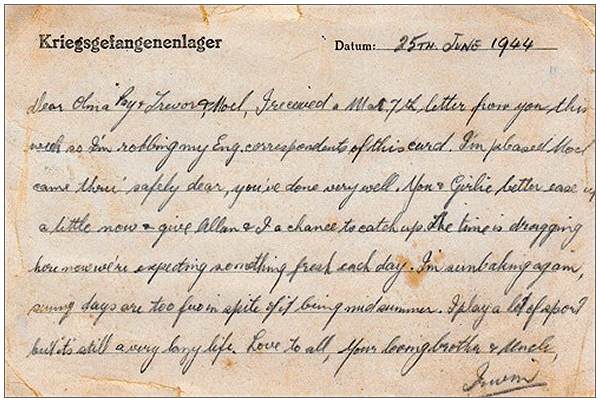 Kriegsgefangenenlager Datum: 25TH. JUNE 1944
Dear Olma Ray & Trevor & Noel, I received a Mar. 7th letter from you this
week so I'm robbing my Eng. correspondents of this card. I'm pleased Noel
came thru' safely dear, you've done very well. You & Girlie better ease up
a little now & give Allan & I a chance to catch up. The time is dragging
here now we're expecting something fresh each day. I'm sunbaking again,
sunny days are too few in spite of it being midsummer. I play a lot of sport
but it's still a very lazy life. Love to all, Your loving brother & Uncle,